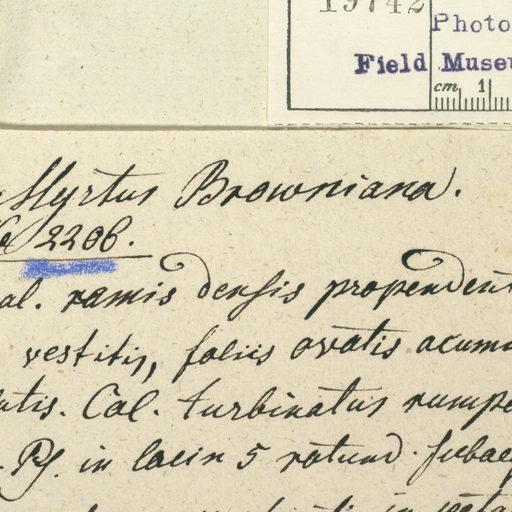 19742
Photo
Field Museu
cm 1
Myrtus Browniana.
No 2206.
al. ramis densis propendent
vestitis, foliis ovatis acumi
atis. Cal. turbinatus rumpe
. Pf. in lacin 5 rotund. subaeq